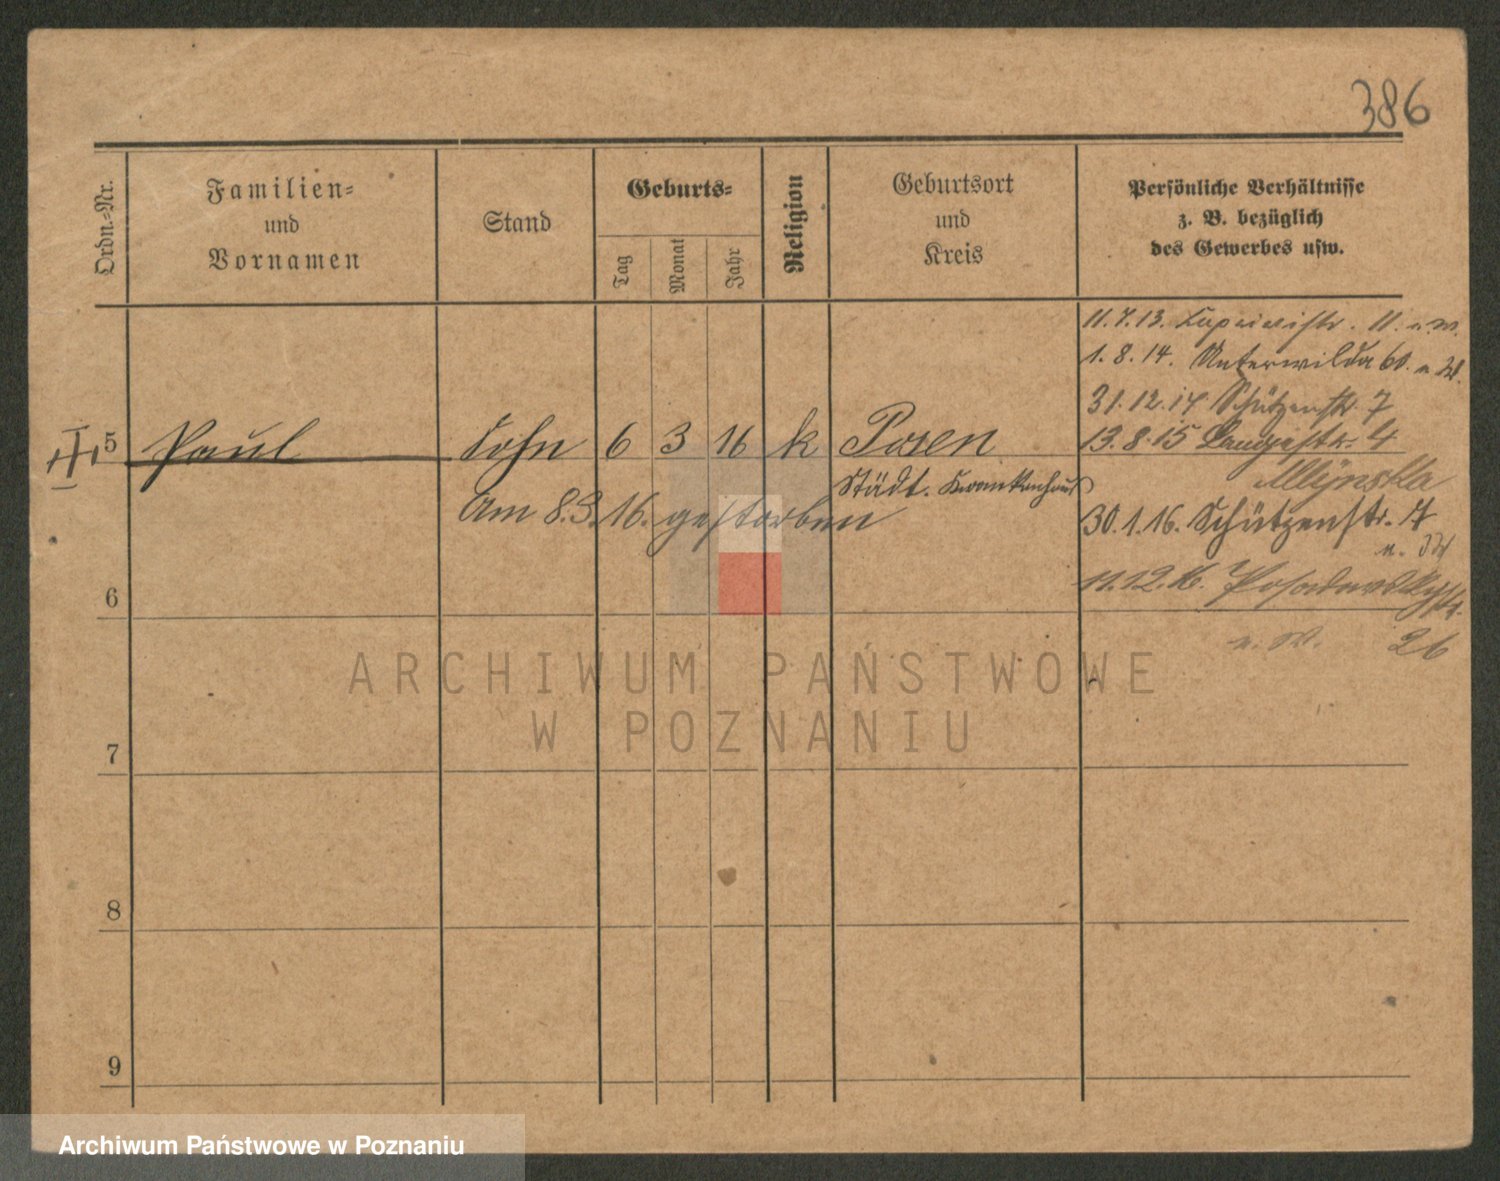 386
Ordn.-Nr.
Familien-
und
Vornamen
Stand
Geburts-
Tag
Monat
Jahr
Religion
Geburtsort
und
Kreis
Persönliche Verhältnisse
z. B. bezüglich
des Gewerbes usw.
11.7.13. Caprivistr. 11.
1.8.14. Unterwilda 60.
31.12.14 Schützenstr. 7
5 Paul Sohn 6 3 16 k Posen
13.8.15 Langestr. 4
Städt. Krankenhaus
Mlynska
Am 8.3.16. gestorben
30.1.16. Schützenstr. 17
11.12.16. Posadowskystr.
26
6
7
8
9
ARCHIWUM PAŃSTWOWE
W POZNANIU
Archiwum Państwowe w Poznaniu